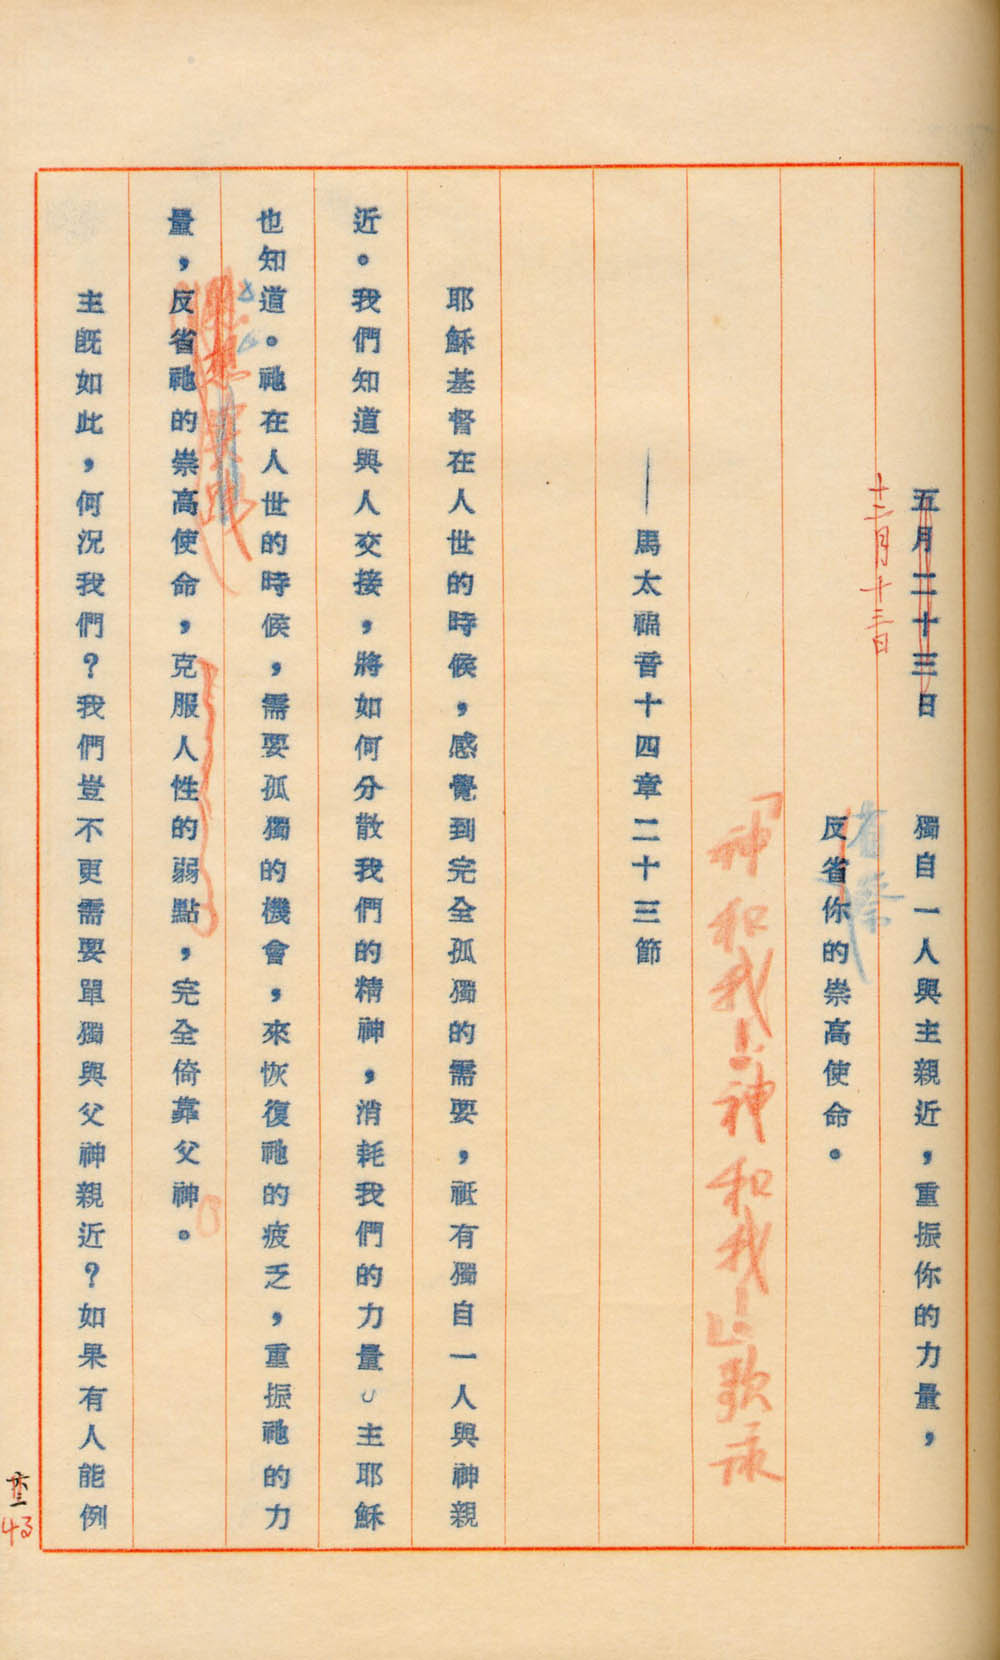 五月二十三日　獨自一人與主親近，重振你的力量，
十二月十三日
省察
反省你的崇高使命。
「神和我與神和我」歌录
——馬太福音十四章二十三節
耶穌基督在人世的時候，感覺到完全孤獨的需要，祇有獨自一人與神親
近。我們知道與人交接，將如何分散我們的精神，消耗我們的力量。主耶穌
也知道。祂在人世的時候，需要孤獨的機會，來恢復祂的疲乏，重振祂的力
量，反省祂的崇高使命，克服人性的弱點，完全倚靠父神。
主既如此，何況我們？我們豈不更需要單獨與父神親近？如果有人能例